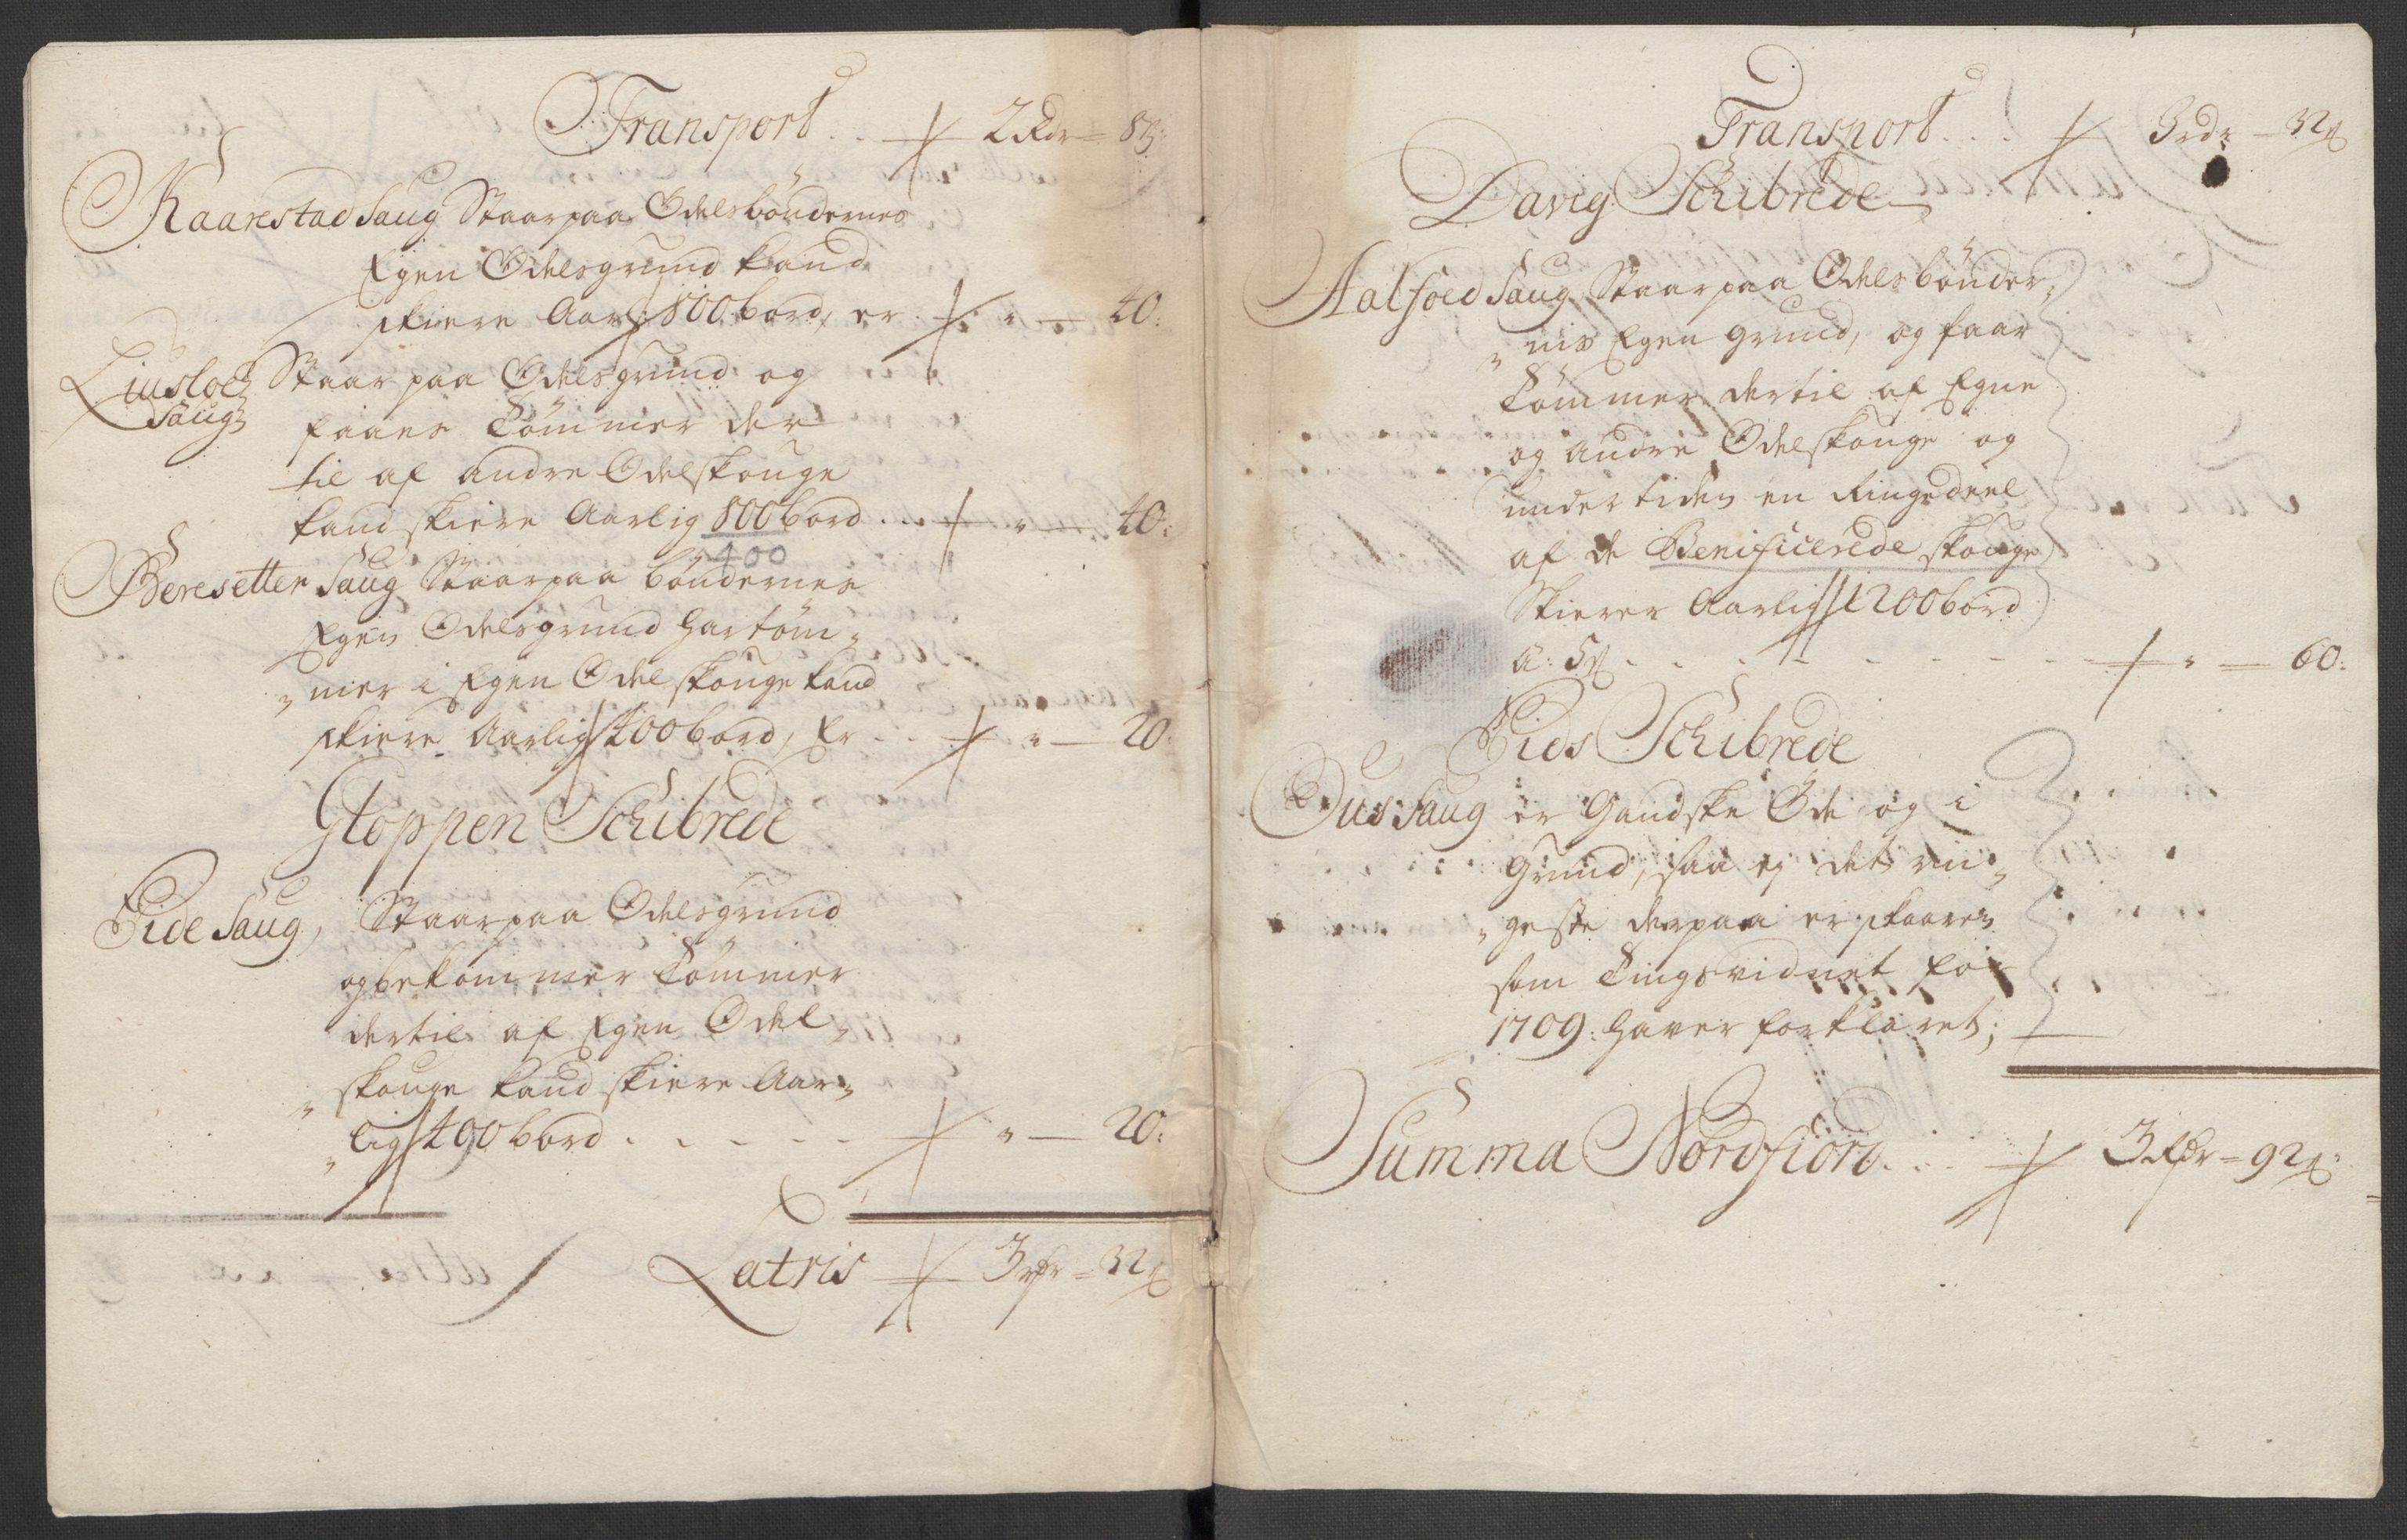 Transport . . 2 Rdr = 8 ß:
Kaarestad Saug Staar paa Odelsböndernes
Egen Odelsgrund kand
skiere Aarl: 800 bord, er . " — 40:
Liusloed Staar paa Odelsgrund og
Saug
faaes Tömmer der
til af andre Odelskouge
kand skiere Aarlig 800 bord . . . " — 40:
400
Beresetter Saug Staar paa böndernes
Egen Odelsgrund har töm„
„mer i Egen Odelskouge kand
skiere Aarlig 400 bord, Er . . . " — 20
Gloppen Schibrede
Eide Saug, Staar paa Odelsgrund
og bekommer Tömmer
dertil af Egen Odel„
„skouge kand skiere Aar„
„lig 400 bord . . . . . " — 20:
Latris 3 rdr = 32 ß
Transport . . . 3 rdr — 32 ß
Davig Schibrede
Aalfoed Saug Staar paa Odelsbönder„
„nis Egen grund, og faar
Tömmer dertil af Egne
og andre Odelskouge og
undertiden en Ringe deel
af de Benificerede skouge
Skierer Aarlig 1200 bord
a: 5 ß . . . . . . . . . " — 60:
Eids Schibrede
Duus Saug er Gandske Öde og i
Grund, saa ej det rin„
„geste derpaa er skaaren
som Tingsvidnet for
1709: haver forklaret; —
Summa Nordfiord . . . 3 Rdr = 92 ß: